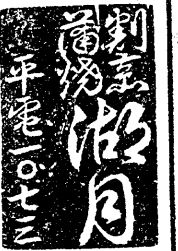 割烹
蒲焼
湖月
平電一〇七三